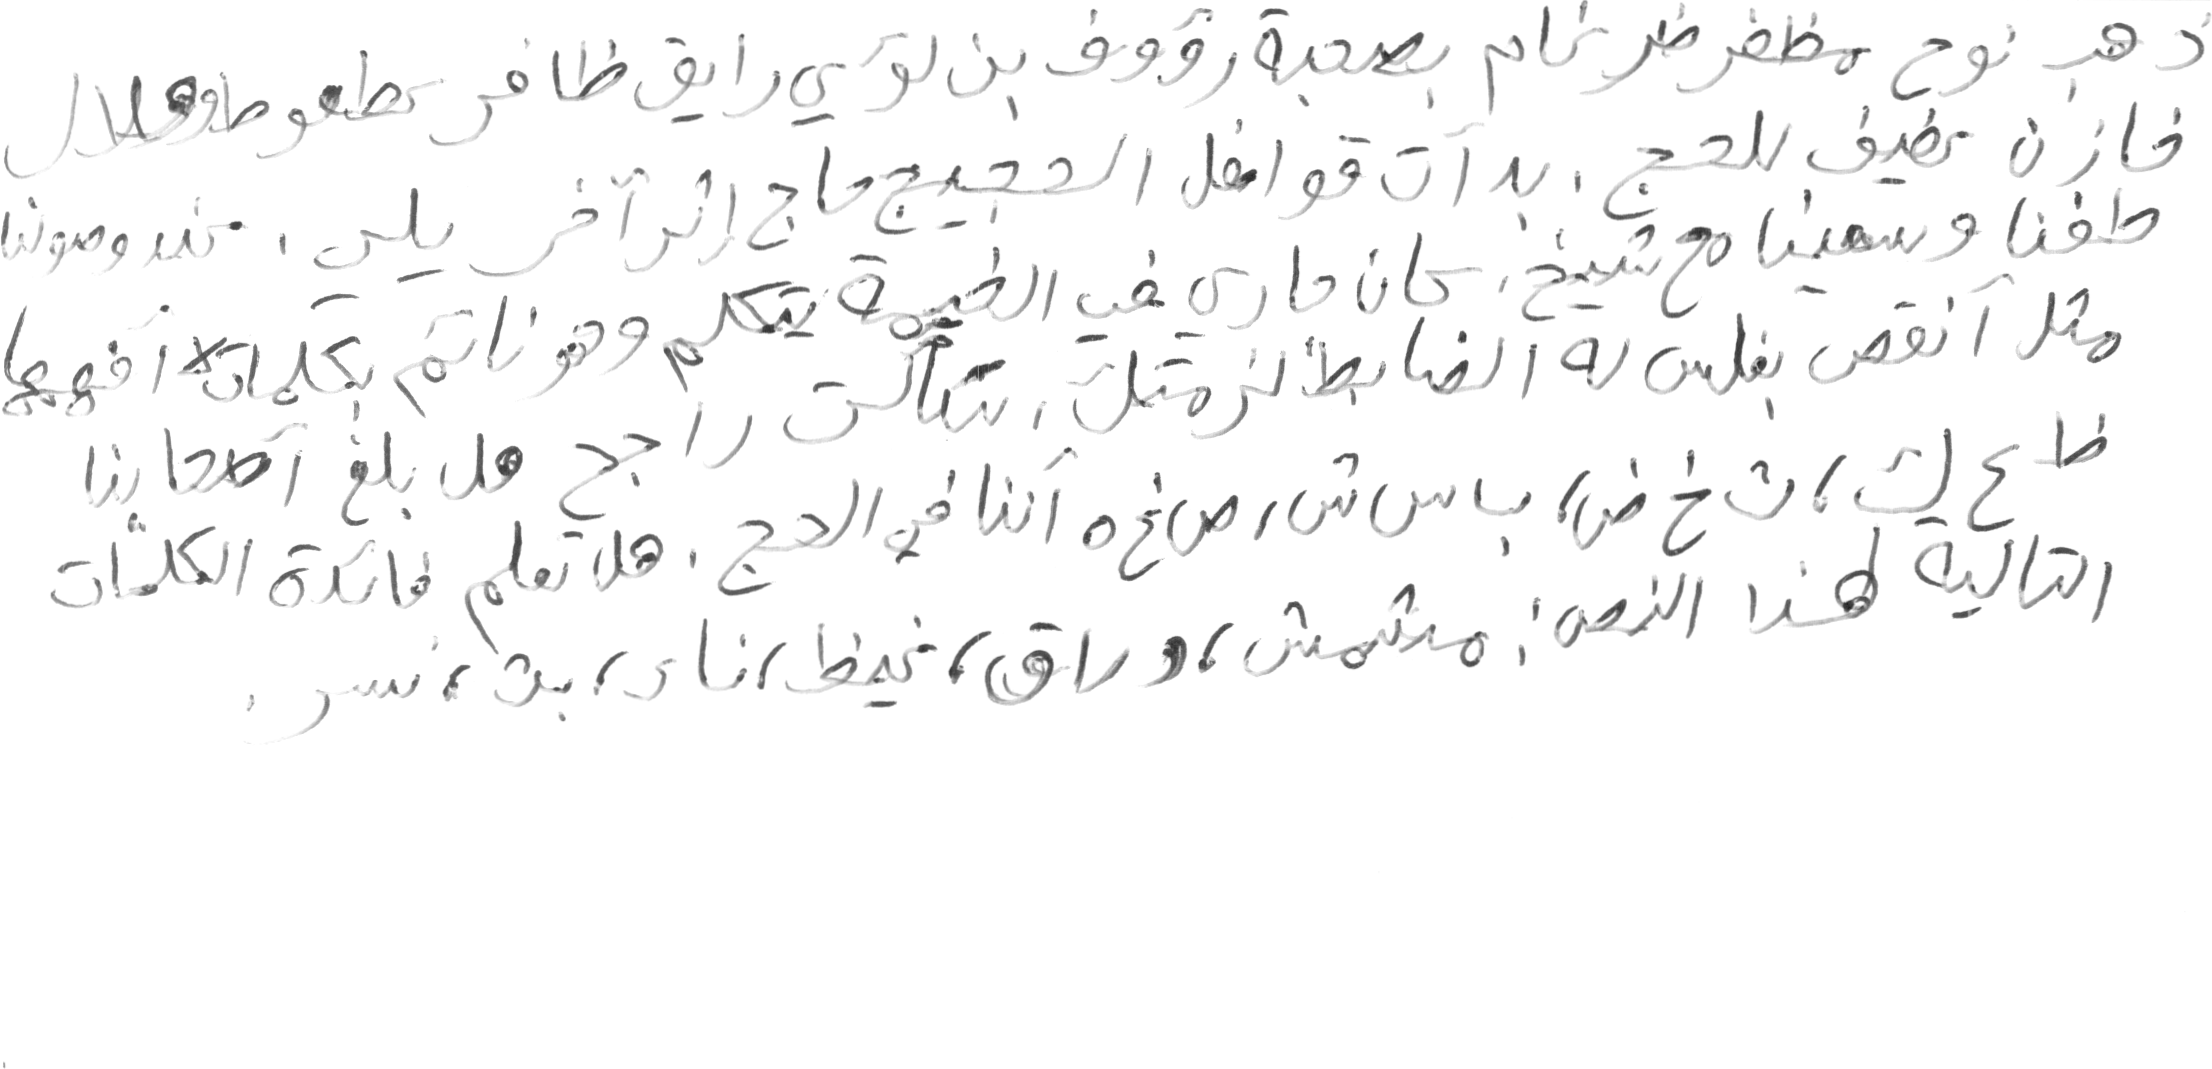 ذهب نوح مظفر ضرغام بصحبة رؤوف بن لؤي رايق ظافر عطعوط وهلال
خازن نضيف للحج . بدأت قوافل الحجيج حاج إثر آخر يلي . عند وصولنا
طفنا وسعينا مع شيخ . كان جاري في الخيمة يتكلم وهو نائم بكلمات لا أفهمها
مثل أنقص بفلس له الضابط لزمتك ، سألت راجح هل بلغ أصحابنا
ظ ع ك ، ث خ ض ، ب س ش ، ص غ ه أننا في الحج . هلا تعلم فائدة الكلمات
التالية لهذا النص : مشمش ، وراق ، غيظ ، ناي ، بث ، نسر .